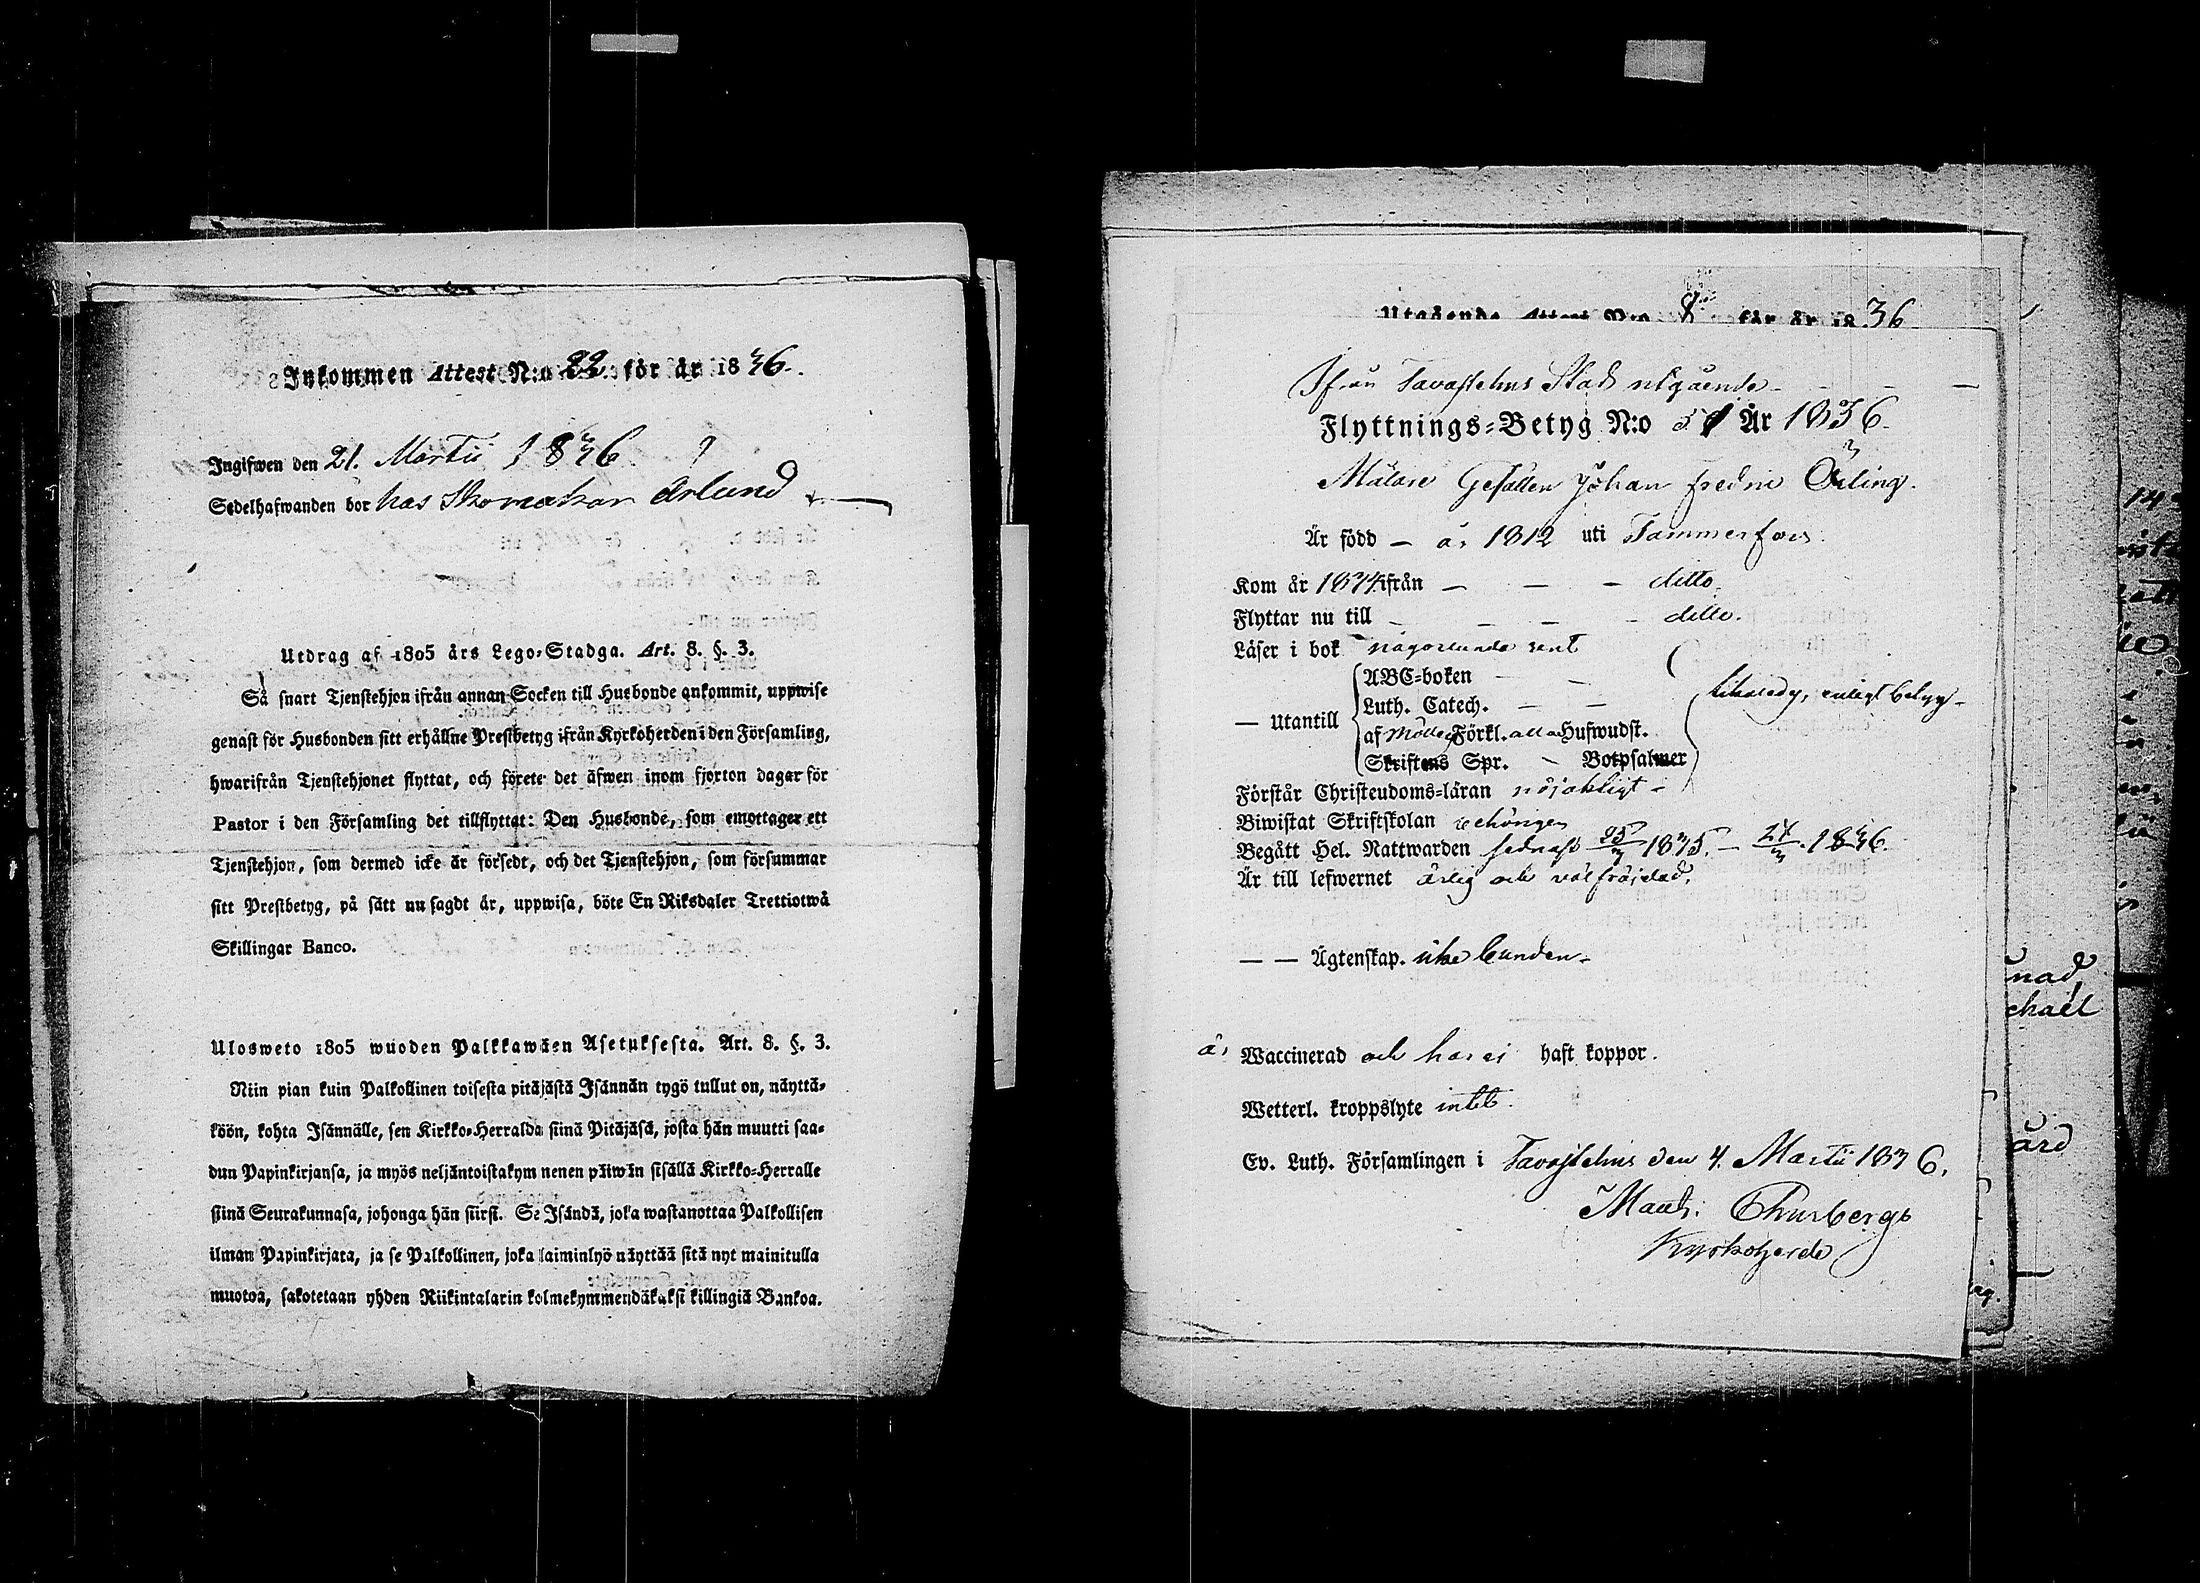 Inkommen Attest N:o 22 för år 1836.
Ingifwen den 21. Martii 1836
Sedelhafwanden bor hos Skomakar Arlund
Utdrag af 1805 års Lego-Stadga. Art. 8. §. 3.
Så snart Tjenstehjon ifrån annan Socken till Husbonde ankommit, uppwise
genast för Husbonden sitt erhållne Prestbetyg ifrån Kyrkoherden i den Församling,
hwarifrån Tjenstehjonet flyttat, och förete det äfwen inom fjorton dagar för
Pastor i den Församling det tillflyttat: Den Husbonde, som emottager ett
Tjenstehjon, som dermed icke är försedt, och det Tjenstehjon, som försummar
sitt Prestbetyg, på sätt nu sagdt är, uppwisa, böte En Riksdaler Trettiotwå
Skillingar Banco.
Ulosweto 1805 wuoden Palkkawäen Asetuksesta. Art. 8. §. 3.
Niin pian kuin Palkollinen toisesta pitäjästä Isännän tygö tullut on, näyttä-
köön, kohta Isännälle, sen Kirkko-Herralda siinä Pitäjäsä, josta hän muutti saa-
dun Papinkirjansa, ja myös neljäntoistakymmenen päiwän sisällä Kirkko-Herralle
siinä Seurakunnasa, johonga hän siirsi. Se Isändä, joka wastanottaa Palkollisen
ilman Papinkirjata, ja se Palkollinen, joka laiminlyö näyttää sitä nyt mainitulla
muotoa, sakotetaan yhden Riikintalarin kolmekymmendäkaksi killingiä Bankoa.
Utgående Attest N:o 8 för år 1836
Ifrån Tavastehus Stad utgående
Flyttnings-Betyg N:o 51 År 1836.
Målare Gesällen Johan Fredric Örling.
Är född – år 1812 uti Tammerfors.
Kom år 1834 ifrån – – – ditto.
Flyttar nu till – – – – ditto.
Läser i bok någorlunda rent
— Utantill
ABC-boken – –
Luth. Catech. – –
af Möllers Förkl. alla Hufwudst.
Skriftens Spr. – Botpsalmer
likaledes, enligt betyg –
Förstår Christeudoms-läran nöjaktigt –
Biwistat Skriftskolan behörigen
Begått Hel. Nattwarden sednast 25/ 1835. – 24/ 1836.
Är till lefwernet ärlig och välfräjdad.
— — Ägtenskap. icke bunden –
är Waccinerad och har ej haft koppor.
Wetterl. kroppslyte intet.
Ev. Luth. Församlingen i Tavastehus den 4. Martii 1836.
Math. Thurberg
Kyrkoherde
nad
chaël
ård